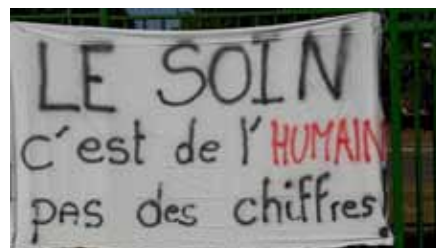 LE SOIN
c'est de l'HUMAIN
pas des chiffres!